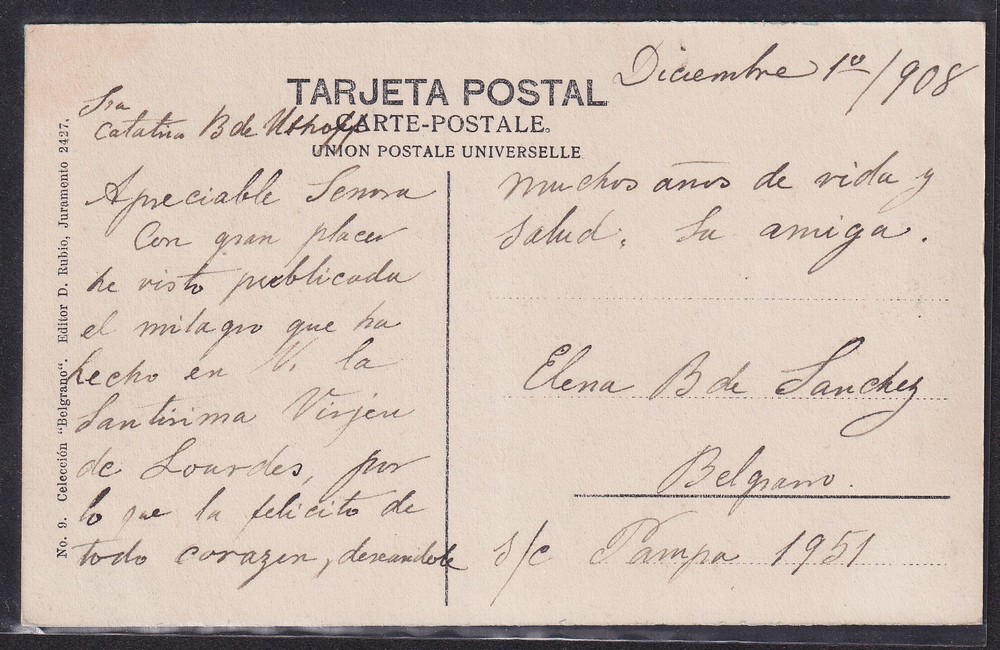 Diciembre 1º/908
TARJETA POSTAL
CARTE-POSTALE.
UNION POSTALE UNIVERSELLE
Sra
Catalina B de Uthoff
Apreciable Senora
Con gran placer
he visto publicada
el milagro que ha
hecho en V. la
Santisima Virjen
de Lourdes, por
lo que la felicito de
todo corazon, deseandole
muchos anos de vida y
salud. Su amiga.
Elena B de Sanchez
Belgrano.
s/c Pampa 1951
No. 9. Celección "Belgrano". Editor D. Rubio, Juramento 2427.